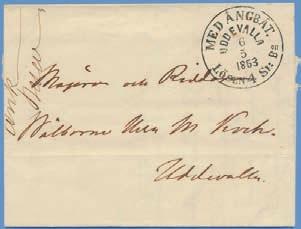 MED ÅNGBÅT.
UDDEVALLA
6
5
1853
LÖSEN 4 Sk Bo
Majoren och Ridd
Wälborne Herr M Koch.
Uddevalla.